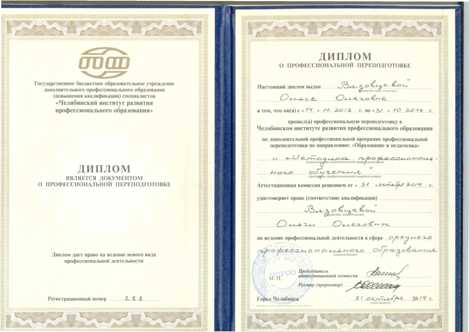 Государственное бюджетное образовательное учреждение
дополнительного профессионального образования
(повышения квалификации) специалистов
«Челябинский институт развития
профессионального образования»
ДИПЛОМ
ЯВЛЯЕТСЯ ДОКУМЕНТОМ
О ПРОФЕССИОНАЛЬНОЙ ПЕРЕПОДГОТОВКЕ
Диплом дает право на ведение нового вида
профессиональной деятельности
Регистрационный номер
ДИПЛОМ
О ПРОФЕССИОНАЛЬНОЙ ПЕРЕПОДГОТОВКЕ
Настоящий диплом выдан Вязовцевой
Ольге Олеговне
в том, что он(а) с 14. 10. 2013 по 31. 10 2014 г.
прошел(а) профессиональную переподготовку в
Челябинском институте развития профессионального образования
по дополнительной профессиональной программе профессиональной
переподготовки по направлению: «Образование и педагогика»
«Методика профессиональ-
ного обучения»
Аттестационная комиссия решением от 31 октября 2014 г.
удостоверяет право (соответствие квалификации)
Вязовцевой
Ольги Олеговны
на ведение профессиональной деятельности в сфере среднего
профессионального образования
М.П.
Председатель
аттестационной комиссии
Ректор (директор)
Город Челябинск 31 октября 2014 г.